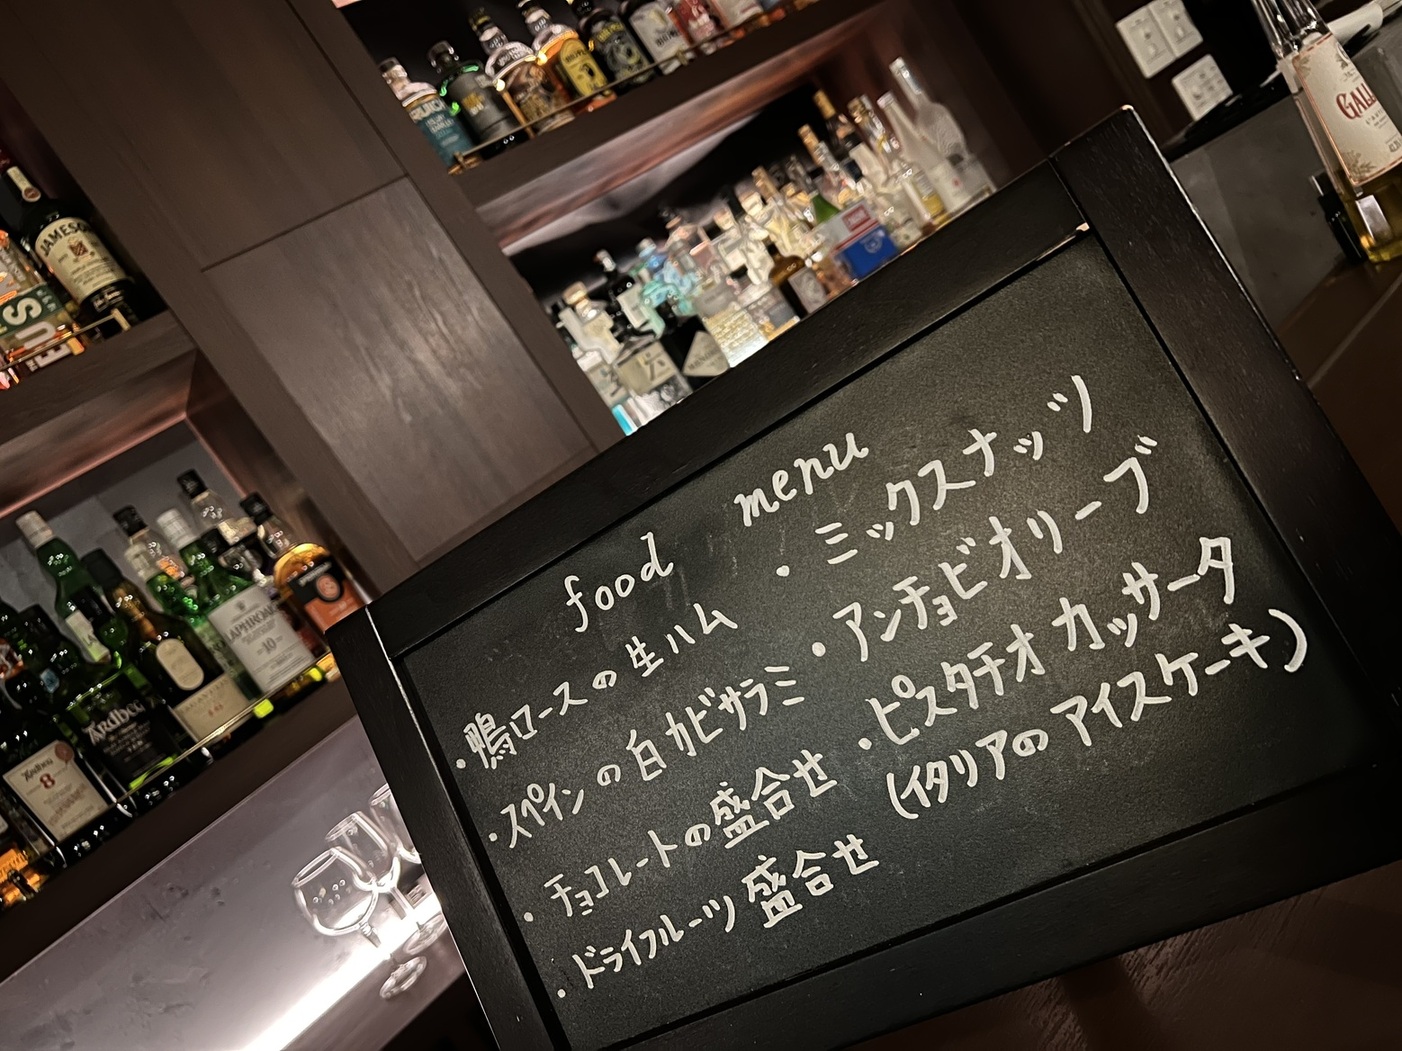 food menu
・鴨ロースの生ハム
・スペインの白カビサラミ
・チョコレートの盛合せ
・ドライフルーツ盛合せ
・ミックスナッツ
・アンチョビオリーブ
・ピスタチオカッサータ
(イタリアのアイスケーキ)
JAMESON
LAPHROAIG
10
Ardbeg
8